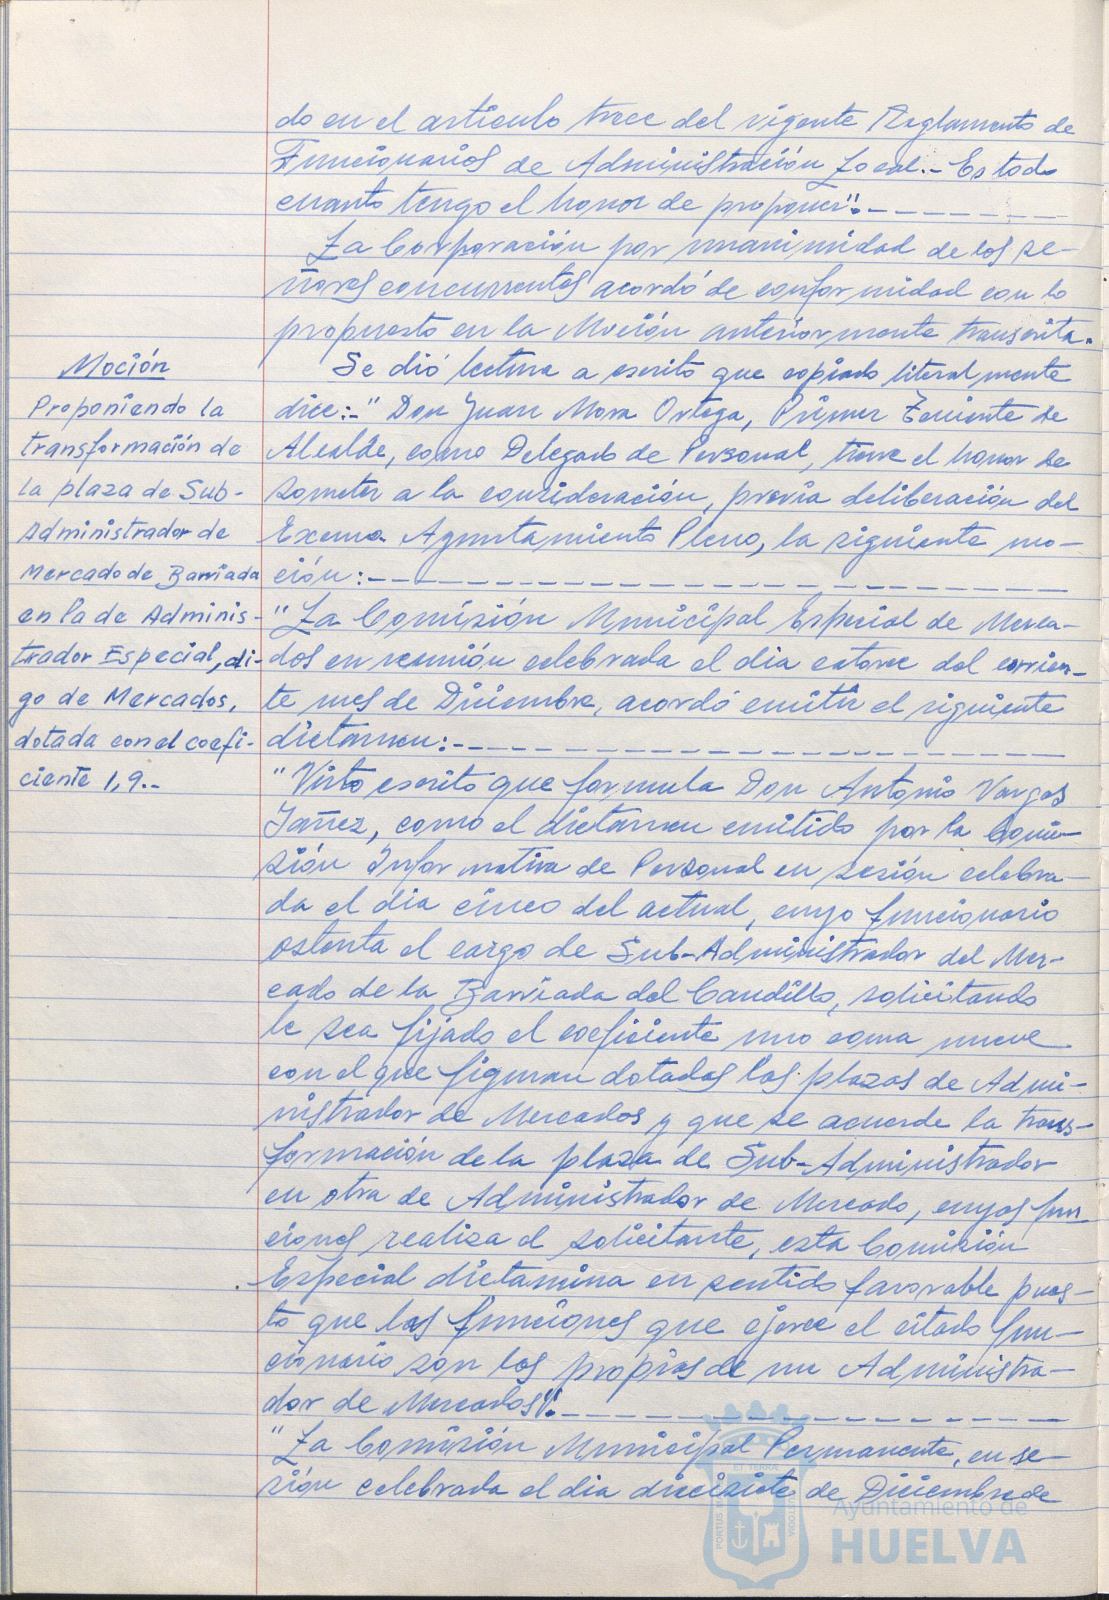 do en el artículo trece del vigente Reglamento de
Funcionarios de Administración Local.- Es todo
cuanto tengo el honor de proponer".- - - - - - - - -
La Corporación por unanimidad de los se-
ñores concurrentes acordó de conformidad con lo
propuesto en la Moción anteriormente transcrita.
Moción
Proponiendo la
transformación de
la plaza de Sub-
Administrador de
Mercado de Barriada
en la de Adminis-
trador Especial, di-
go de Mercados,
dotada con el coefi-
ciente 1,9.-
Se dió lectura a escrito que copiado literalmente
dice:-" Don Juan Mora Ortega, Primer Teniente de
Alcalde, como Delegado de Personal, tiene el honor de
someter a la consideración, previa deliberación del
Excmo. Ayuntamiento Pleno, la siguiente mo-
ción:- - - - - - - - - - - - - - - - -
"La Comisión Municipal Especial de Merca-
dos en reunión celebrada el dia catorce del corrien-
te mes de Diciembre, acordó emitir el siguiente
dictamen:- - - - - - - - - - - - - - -
"Visto escrito que formula Don Antonio Vargas
Yañez, como el dictamen emitido por la Comi-
sión Informativa de Personal en sesión celebra-
da el dia cinco del actual, cuyo funcionario
ostenta el cargo de Sub-Administrador del Mer-
cado de la Barriada del Caudillo, solicitando
le sea fijado el coeficiente uno coma nueve
con el que figuran dotadas las plazas de Admi-
nistrador de Mercados y que se acuerde la trans-
formación de la plaza de Sub-Administrador
en otra de Administrador de Mercado, cuyas fun-
ciones realiza el solicitante, esta Comisión
Especial dictamina en sentido favorable pues-
to que las funciones que ejerce el citado fun-
cionario son las propias de un Administra-
dor de Mercados".- - - - - - - - - - - - -
"La Comisión Municipal Permanente, en se-
sión celebrada el dia diecisiete de Diciembre de
Ayuntamiento de
HUELVA